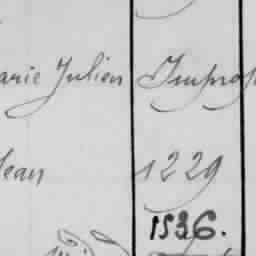 arie Julien Improp
Jean 1229
1536.